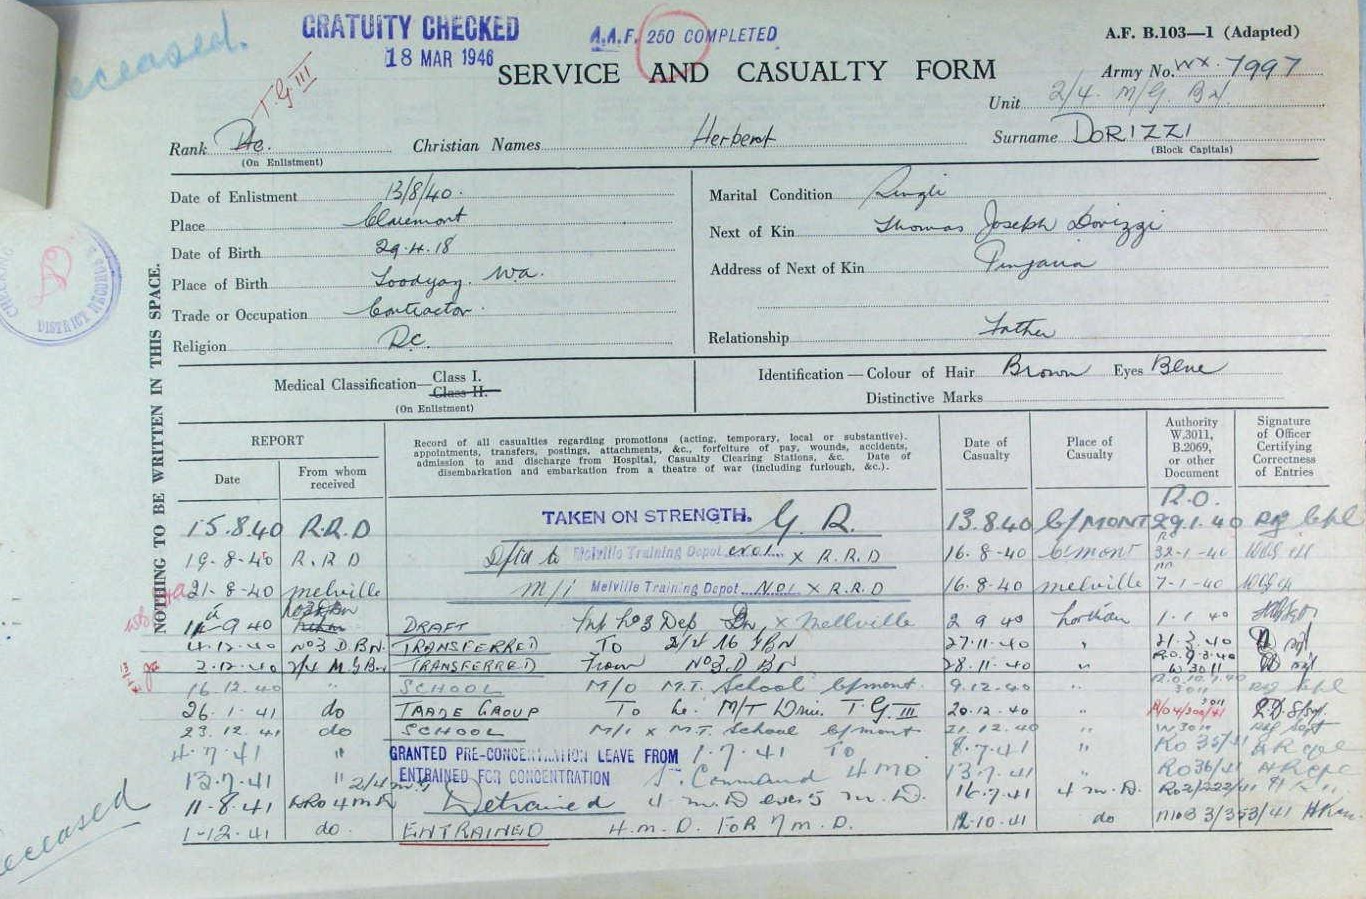 Deceased.
GRATUITY CHECKED
18 MAR 1946
A.A.F. 250 COMPLETED
A.F. B.103—1 (Adapted)
SERVICE AND CASUALTY FORM
Army No. WX. 7997
T.G III
Unit 2/4 M/G. Bn
Rank Pte. Christian Names Herbert Surname DORIZZI
(On Enlistment) (Block Capitals)
Date of Enlistment 13/8/40.
Place Claremont
Date of Birth 29.4.18
Place of Birth Toodyay. Wa.
Trade or Occupation Contractor.
Religion R.C.
Marital Condition Single
Next of Kin Thomas Joseph Dorizzi
Address of Next of Kin
Relationship Father
Medical Classification—Class I.
Class II.
(On Enlistment)
Identification—Colour of Hair Brown Eyes Blue
Distinctive Marks
NOTHING TO BE WRITTEN IN THIS SPACE.
DISTRICT RECORDS
REPORT
Date
From whom received
Record of all casualties regarding promotions (acting, temporary, local or substantive).
appointments, transfers, postings, attachments, &c., forfeiture of pay, wounds, accidents,
admission to and discharge from Hospital, Casualty Clearing Stations, &c. Date of
disembarkation and embarkation from a theatre of war (including furlough, &c.).
Date of Casualty
Place of Casualty
Authority W.3011, B.2069, or other Document
Signature of Officer Certifying Correctness of Entries
R.O.
15.8.40 R.R.D TAKEN ON STRENGTH. G.R. 13.8.40 C/MONT 29.1.40
19-8-40 R.R.D to Melville Training Depot x R.R.D 16-8-40 C'mont 32-1-40
21-8-40 melville M/i Melville Training Depot No1 x R.R.D 16-8-40 melville 7-1-40
9 40 DRAFT Inf No3 Dep Bn x Mellville 2 9 40 Northam 1-1 40
4-12-40 No3 D BN. TRANSFERRED TO 2/4 MG BN 27-11-40 "
2-12-40 2/4 M.G Bn TRANSFERRED From No3 D BN 28.11-40 "
16.12.40 " SCHOOL M/O M.T. School C/mont. 9.12.40 "
26.1.41 do TRADE GROUP To be M/T Driv. T G III 20.12.40 "
23.12.41 do SCHOOL M/I x M.T. School C/mont 21.12.40 "
4-7-41 " GRANTED PRE-CONCENTRATION LEAVE FROM 1.7.41 TO 8.7.41 "
13.7.41 " ENTRAINED FOR CONCENTRATION Command 4 MD 13.7.41 " RO36/41
2/4 MG
11-8.41 Detrained 4 M.D ex 5 M.D. 16-7.41 4 M.D.
1-12.41 do. ENTRAINED 4.M.D. FOR 7 M.D. 12-10.41 do
Deceased